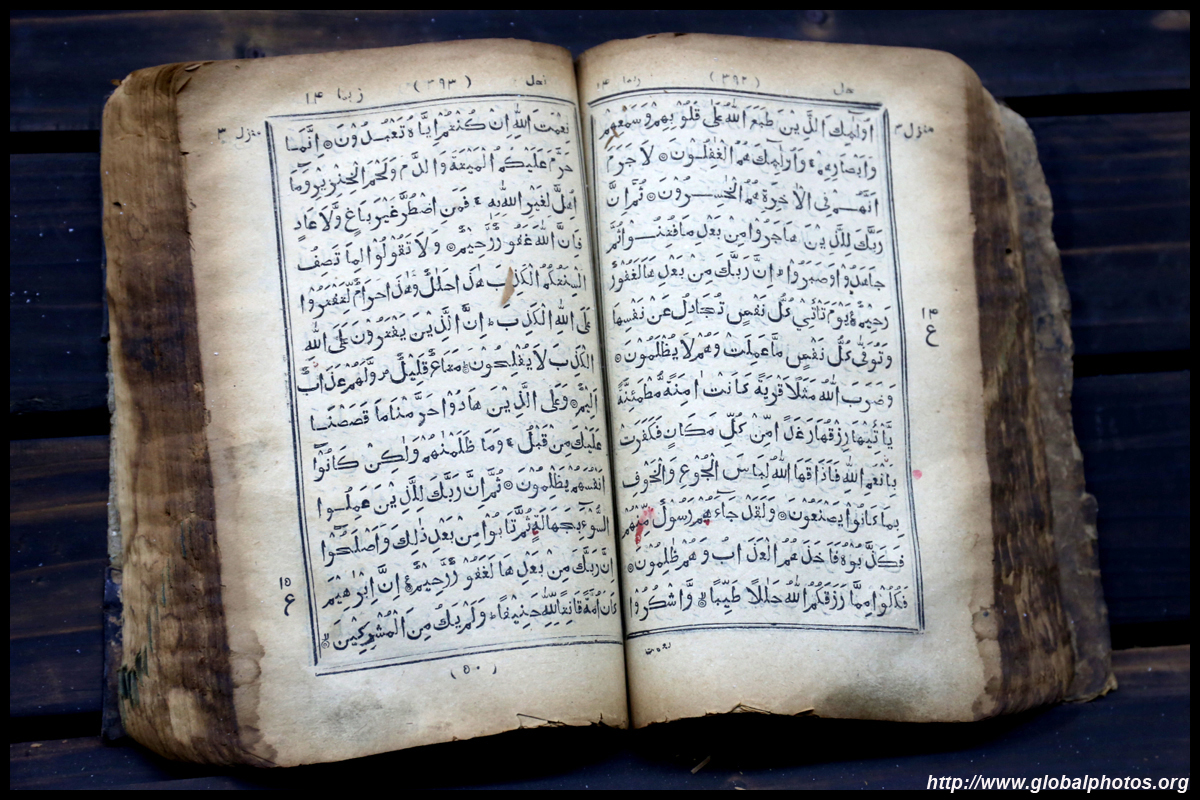 نحل
(۳۹۲)
ربما ۱۴
منزل ۳
اُولٰٓئِكَ الَّذِيْنَ طَبَعَ اللّٰهُ عَلٰى قُلُوْبِهِمْ وَسَمْعِهِمْ
وَاَبْصَارِهِمْ ۚ وَاُولٰٓئِكَ هُمُ الْغٰفِلُوْنَ ۞ لَا جَرَمَ
اَنَّهُمْ فِى الْاٰخِرَةِ هُمُ الْخٰسِرُوْنَ ۞ ثُمَّ اِنَّ
رَبَّكَ لِلَّذِيْنَ هَاجَرُوْا مِنْۢ بَعْدِ مَا فُتِنُوْا ثُمَّ
جَاهَدُوْا وَصَبَرُوْٓا ۙ اِنَّ رَبَّكَ مِنْۢ بَعْدِهَا لَغَفُوْرٌ
رَّحِيْمٌ ۞ يَوْمَ تَاْتِىْ كُلُّ نَفْسٍ تُجَادِلُ عَنْ نَّفْسِهَا
وَتُوَفّٰى كُلُّ نَفْسٍ مَّا عَمِلَتْ وَهُمْ لَا يُظْلَمُوْنَ ۞
وَضَرَبَ اللّٰهُ مَثَلًا قَرْيَةً كَانَتْ اٰمِنَةً مُّطْمَئِنَّةً
يَّاْتِيْهَا رِزْقُهَا رَغَدًا مِّنْ كُلِّ مَكَانٍ فَكَفَرَتْ
بِاَنْعُمِ اللّٰهِ فَاَذَاقَهَا اللّٰهُ لِبَاسَ الْجُوْعِ وَالْخَوْفِ
بِمَا كَانُوْا يَصْنَعُوْنَ ۞ وَلَقَدْ جَآءَهُمْ رَسُوْلٌ مِّنْهُمْ
فَكَذَّبُوْهُ فَاَخَذَهُمُ الْعَذَابُ وَهُمْ ظٰلِمُوْنَ ۞
فَكُلُوْا مِمَّا رَزَقَكُمُ اللّٰهُ حَلٰلًا طَيِّبًا ۠ وَّاشْكُرُوْا
۱۴
ع
نعمت
نحل
(۳۹۳)
ربما ۱۴
منزل ۳
نِعْمَتَ اللّٰهِ اِنْ كُنْتُمْ اِيَّاهُ تَعْبُدُوْنَ ۞ اِنَّمَا
حَرَّمَ عَلَيْكُمُ الْمَيْتَةَ وَالدَّمَ وَلَحْمَ الْخِنْزِيْرِ وَمَآ
اُهِلَّ لِغَيْرِ اللّٰهِ بِهٖ ۚ فَمَنِ اضْطُرَّ غَيْرَ بَاغٍ وَّلَا عَادٍ
فَاِنَّ اللّٰهَ غَفُوْرٌ رَّحِيْمٌ ۞ وَلَا تَقُوْلُوْا لِمَا تَصِفُ
اَلْسِنَتُكُمُ الْكَذِبَ هٰذَا حَلٰلٌ وَّهٰذَا حَرَامٌ لِّتَفْتَرُوْا
عَلَى اللّٰهِ الْكَذِبَ ۚ اِنَّ الَّذِيْنَ يَفْتَرُوْنَ عَلَى اللّٰهِ
الْكَذِبَ لَا يُفْلِحُوْنَ ۞ مَتَاعٌ قَلِيْلٌ ۠ وَّلَهُمْ عَذَابٌ
اَلِيْمٌ ۞ وَعَلَى الَّذِيْنَ هَادُوْا حَرَّمْنَا مَا قَصَصْنَا
عَلَيْكَ مِنْ قَبْلُ ۚ وَمَا ظَلَمْنٰهُمْ وَلٰكِنْ كَانُوْٓا
اَنْفُسَهُمْ يَظْلِمُوْنَ ۞ ثُمَّ اِنَّ رَبَّكَ لِلَّذِيْنَ عَمِلُوا
السُّوْٓءَ بِجَهَالَةٍ ثُمَّ تَابُوْا مِنْۢ بَعْدِ ذٰلِكَ وَاَصْلَحُوْٓا
اِنَّ رَبَّكَ مِنْۢ بَعْدِهَا لَغَفُوْرٌ رَّحِيْمٌ ۞ اِنَّ اِبْرٰهِيْمَ
كَانَ اُمَّةً قَانِتًا لِّلّٰهِ حَنِيْفًا ۚ وَلَمْ يَكُ مِنَ الْمُشْرِكِيْنَ ۞
۱۵
ع
(۵۰)
http://www.globalphotos.org